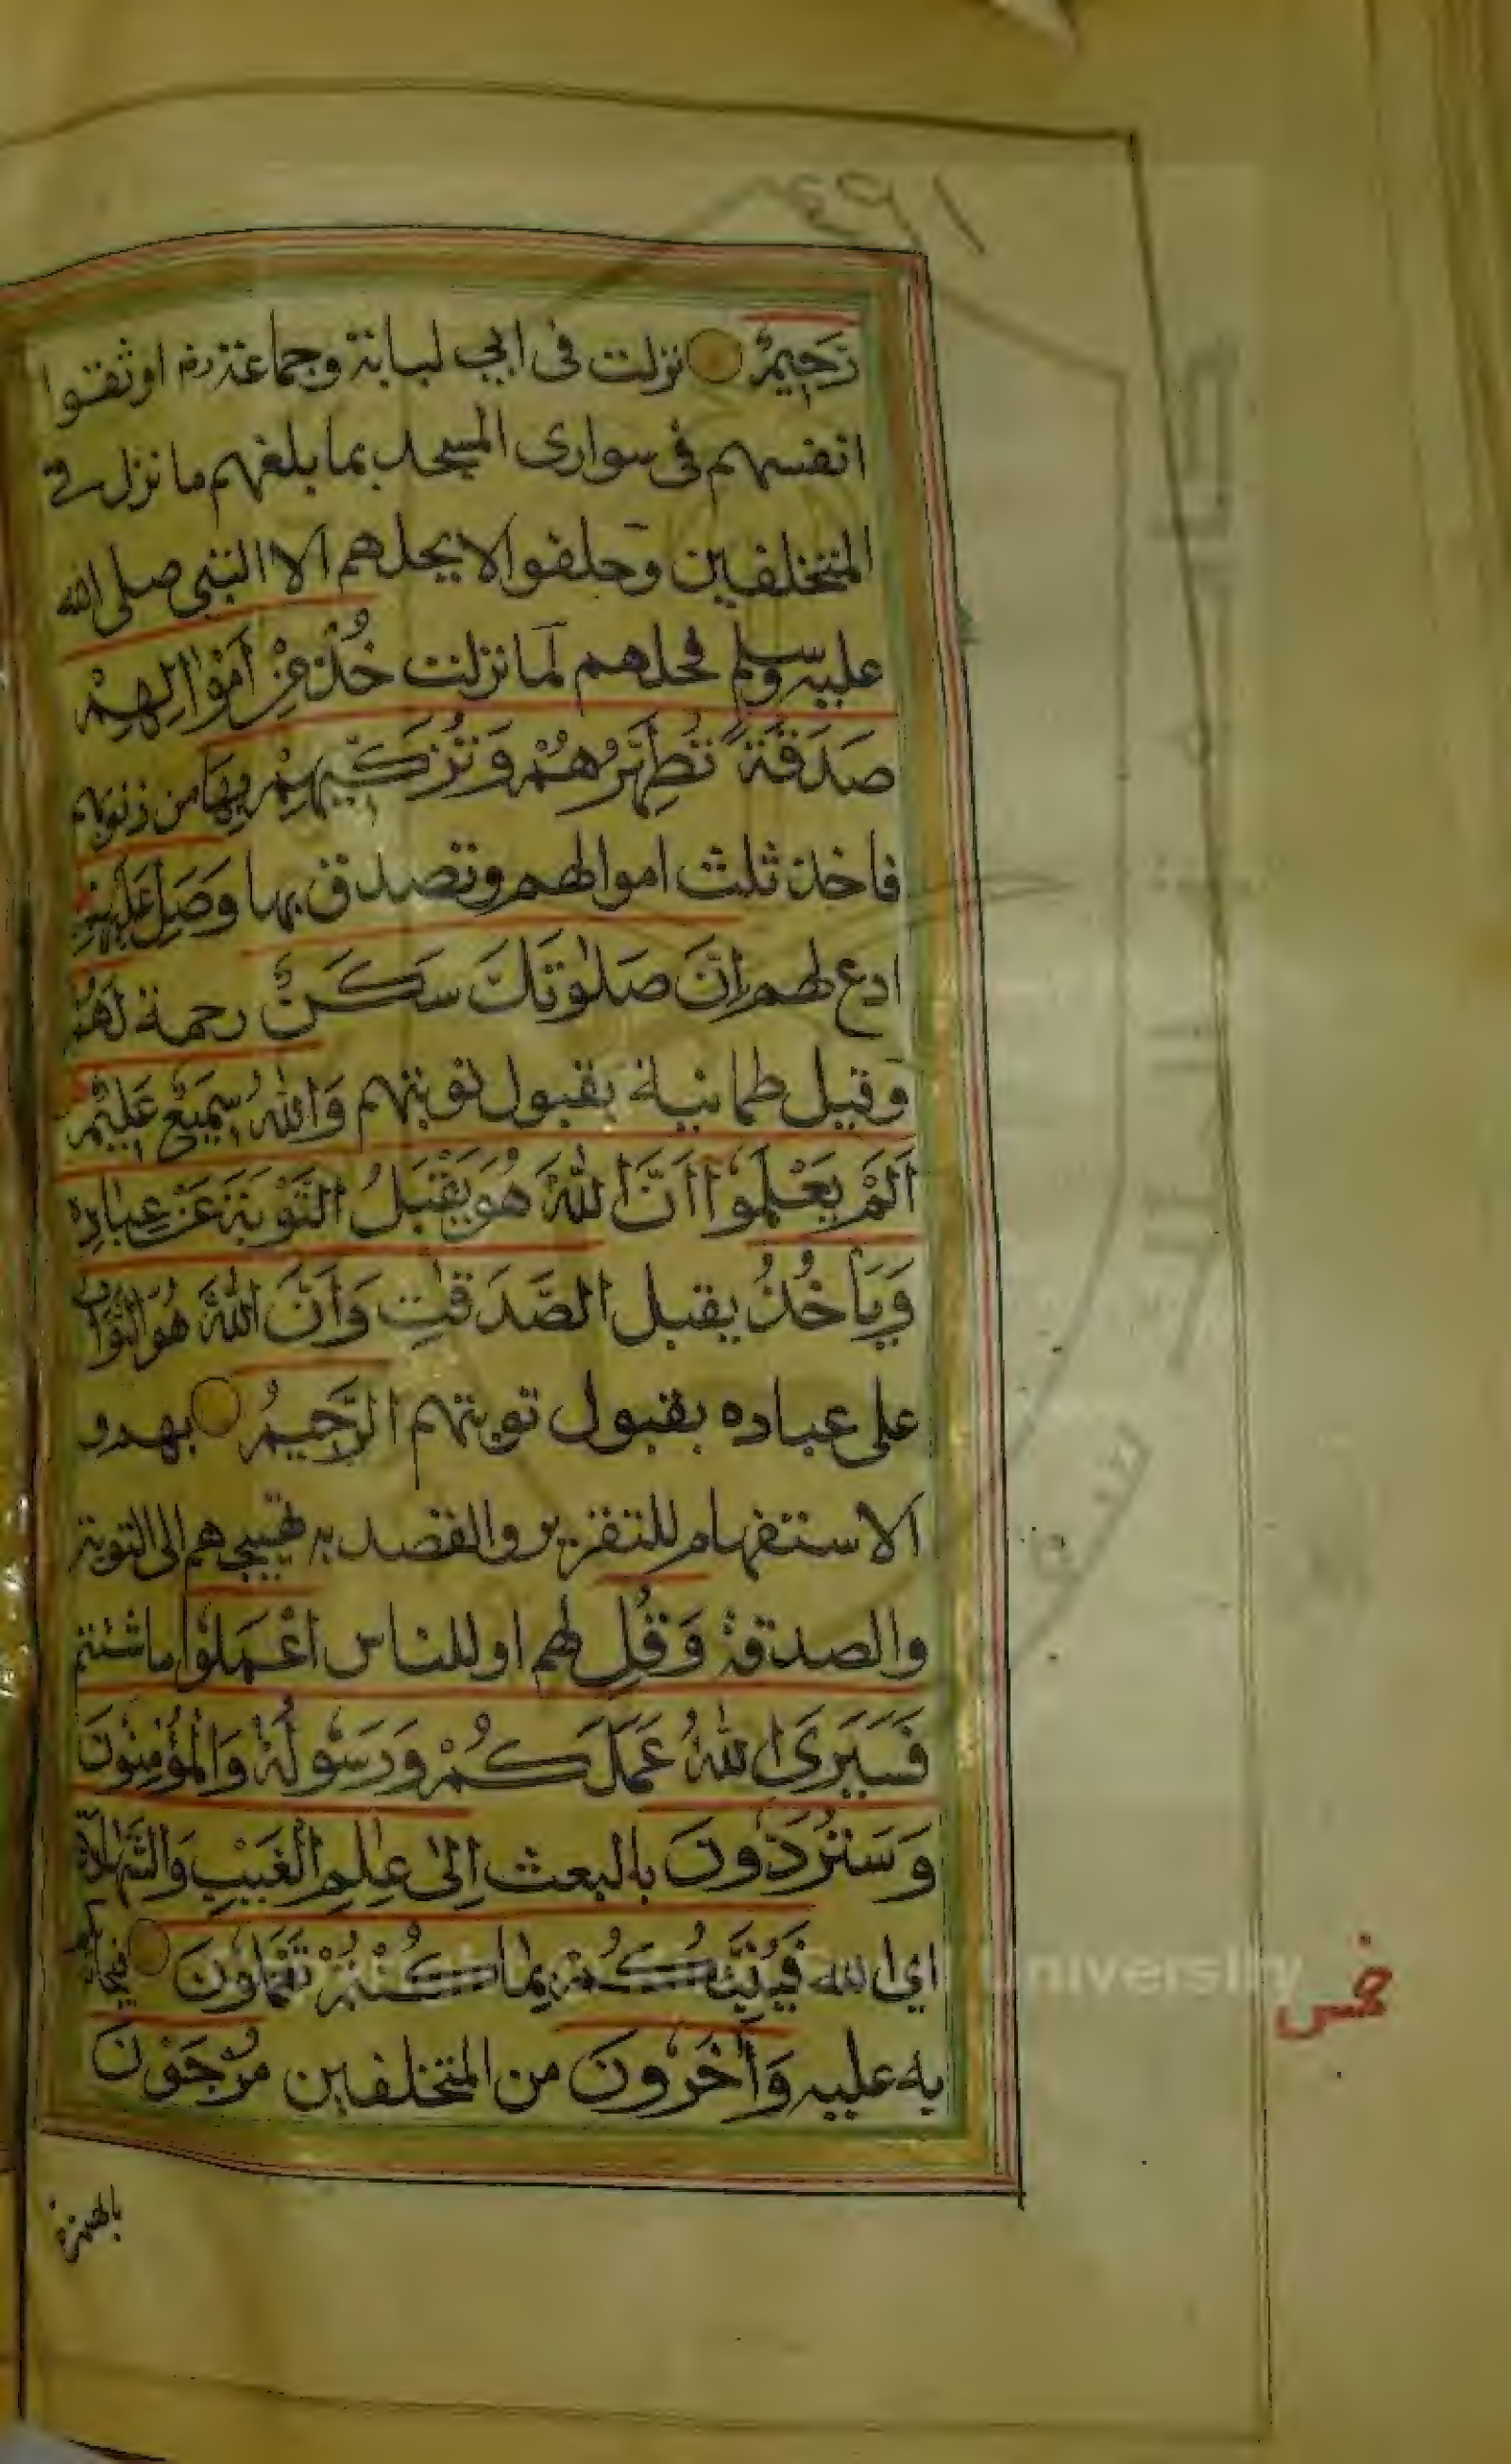 رَحِيمٌ نزلت فى ابى لبابة وجماعة اوثقوا
انفسهم فى سوارى المسجد بما بلغهم ما نزل فى
المتخلفين وحلفوا لا يحلهم الا النبى صلى الله
عليه وسلم فحلهم لما نزلت خُذْ مِنْ اَمْوَالِهِمْ
صَدَقَةً تُطَهِّرُهُمْ وَتُزَكِّيهِمْ بِهَا من ذنوبهم
فاخذ ثلث اموالهم وتصدق بها وَصَلِّ عَلَيْهِمْ
ادع لهم اِنَّ صَلٰوتَكَ سَكَنٌ رحمة لَهُمْ
وقيل طمانينة بقبول توبتهم وَاللّٰهُ سَمِيعٌ عَلِيمٌ
اَلَمْ يَعْلَمُوا اَنَّ اللّٰهَ هُوَ يَقْبَلُ التَّوْبَةَ عَنْ عِبَادِهِ
وَيَأْخُذُ يقبل الصَّدَقٰتِ وَاَنَّ اللّٰهَ هُوَ التَّوَّابُ
على عباده بقبول توبتهم الرَّحِيمُ بهم و
الاستفهام للتقرير والقصد به تهييجهم الى التوبة
والصدقة وَقُلِ لهم او للناس اعْمَلُوا ما شئتم
فَسَيَرَى اللّٰهُ عَمَلَكُمْ وَرَسُولُهُ وَالْمُؤْمِنُونَ
وَسَتُرَدُّونَ بالبعث اِلٰى عٰلِمِ الْغَيْبِ وَالشَّهَادَةِ
اى الله فَيُنَبِّئُكُمْ بِمَا كُنْتُمْ تَعْمَلُونَ فيجازيكم
به عليه وَآخَرُونَ من المتخلفين مُرْجَوْنَ
niversity
بالهمزة